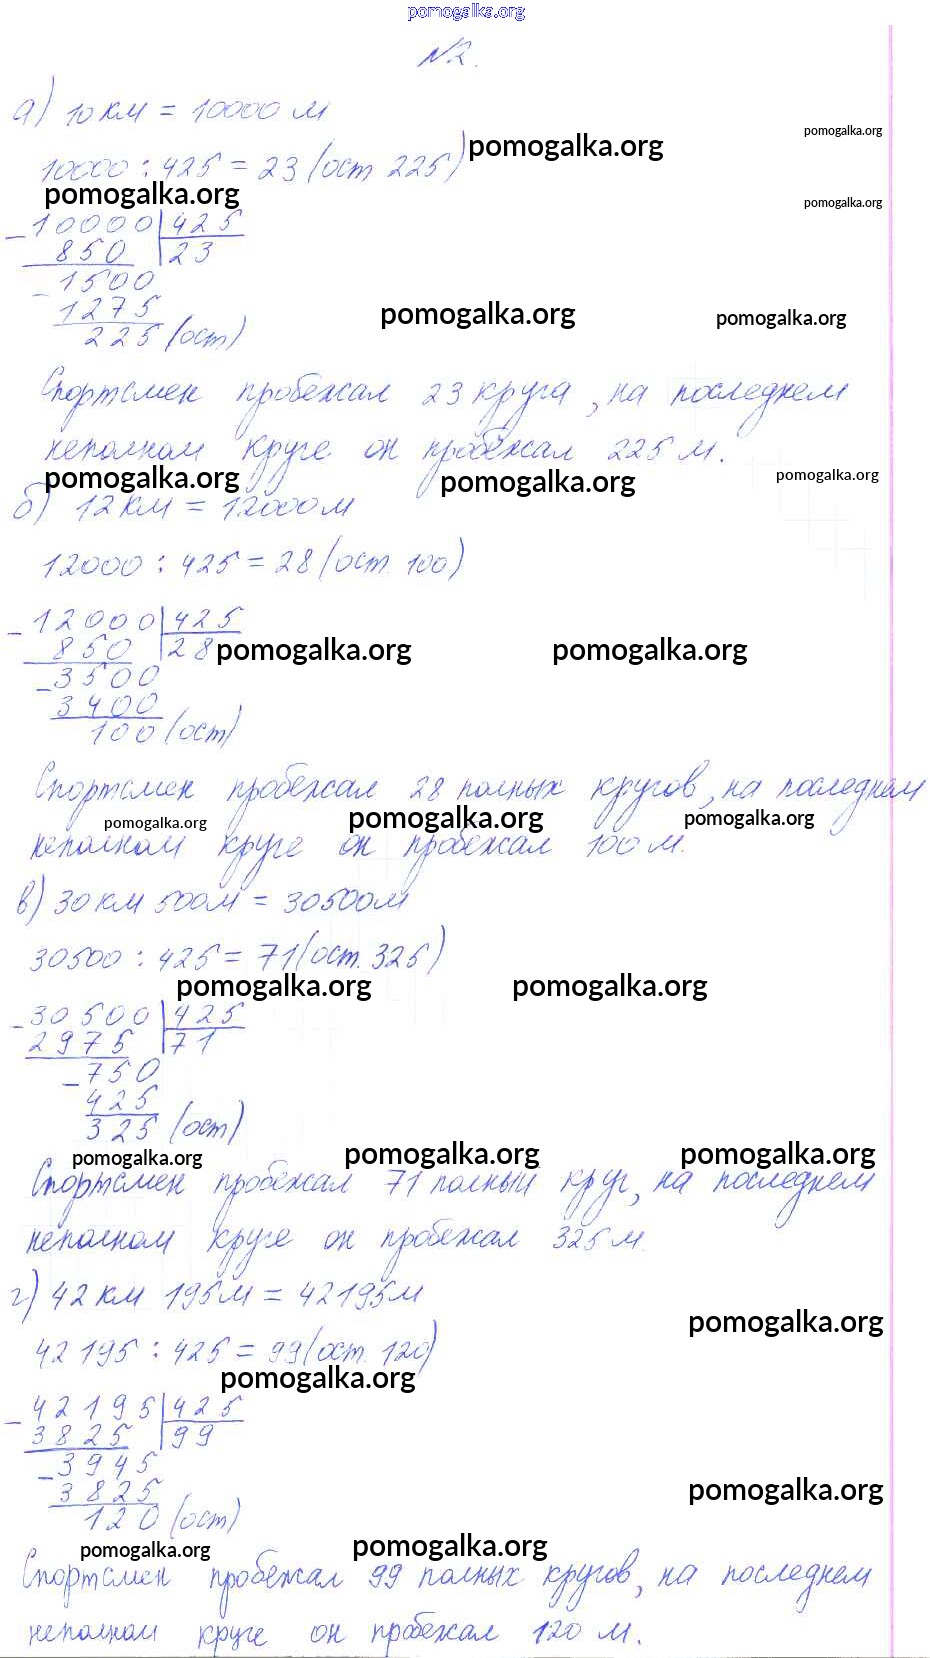 pomogalka.org
№2.
а) 10 км = 10000 м
pomogalka.org
10000 : 425 = 23 (ост 225) pomogalka.org
pomogalka.org pomogalka.org
- 10000 | 425
850 | 23
- 1500
1275
225 (ост)
pomogalka.org pomogalka.org
Спортсмен пробежал 23 круга, на последнем
неполном круге он пробежал 225 м.
pomogalka.org pomogalka.org pomogalka.org
б) 12 км = 12000 м
12000 : 425 = 28 (ост. 100)
- 12000 | 425
850 | 28 pomogalka.org pomogalka.org
- 3500
3400
100 (ост)
Спортсмен пробежал 28 полных кругов, на последнем
pomogalka.org pomogalka.org pomogalka.org
неполном круге он пробежал 100 м.
в) 30 км 500 м = 30500 м
30500 : 425 = 71 (ост. 325)
pomogalka.org pomogalka.org
- 30500 | 425
2975 | 71
- 750
425
325 (ост)
pomogalka.org pomogalka.org pomogalka.org
Спортсмен пробежал 71 полный круг, на последнем
неполном круге он пробежал 325 м.
г) 42 км 195 м = 42195 м
pomogalka.org
42195 : 425 = 99 (ост. 120)
pomogalka.org
- 42195 | 425
3825 | 99
- 3945
3825
pomogalka.org
120 (ост)
pomogalka.org pomogalka.org
Спортсмен пробежал 99 полных кругов, на последнем
неполном круге он пробежал 120 м.